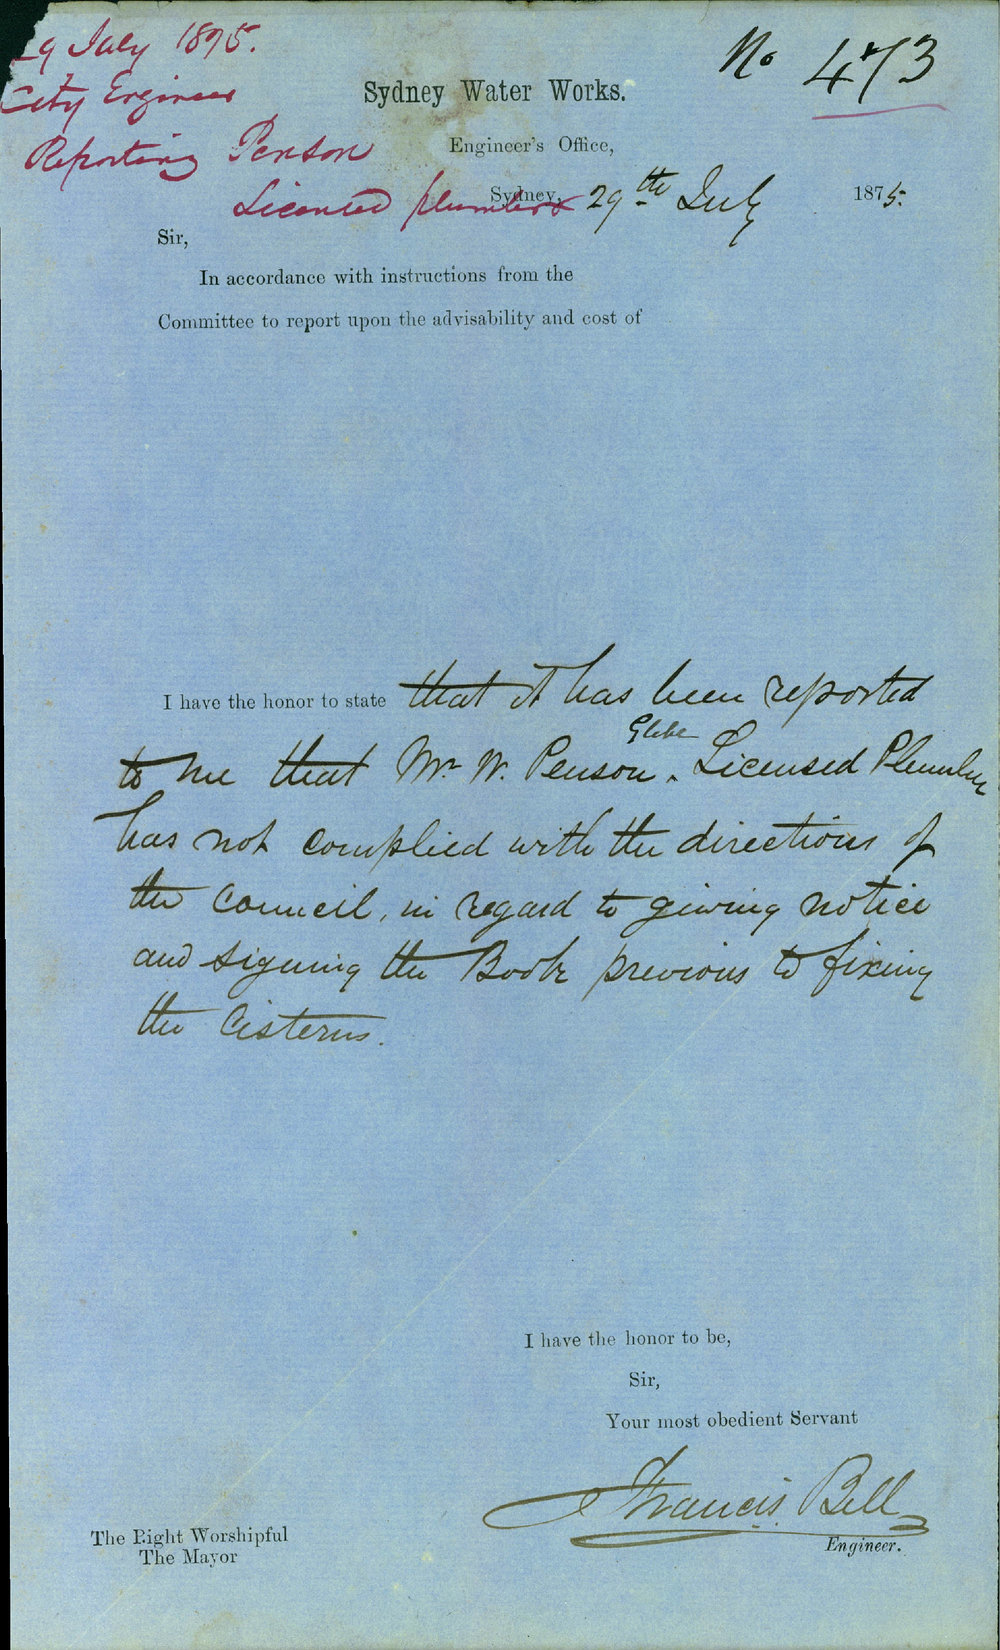 29 July 1875.
City Engineer
Reporting Penson
Licensed plumber
No 473
Sydney Water Works.
Engineer's Office,
Sydney, 29th July 1875.
Sir,
In accordance with instructions from the
Committee to report upon the advisability and cost of
I have the honor to state that it has been reported
to me that Mr W. Penson. Glebe Licensed Plumber
has not complied with the directions of
the Council, in regard to giving notice
and signing the Book previous to fixing
the Cisterns.
I have the honor to be,
Sir,
Your most obedient Servant
Francis Bell
Engineer.
The Right Worshipful
The Mayor